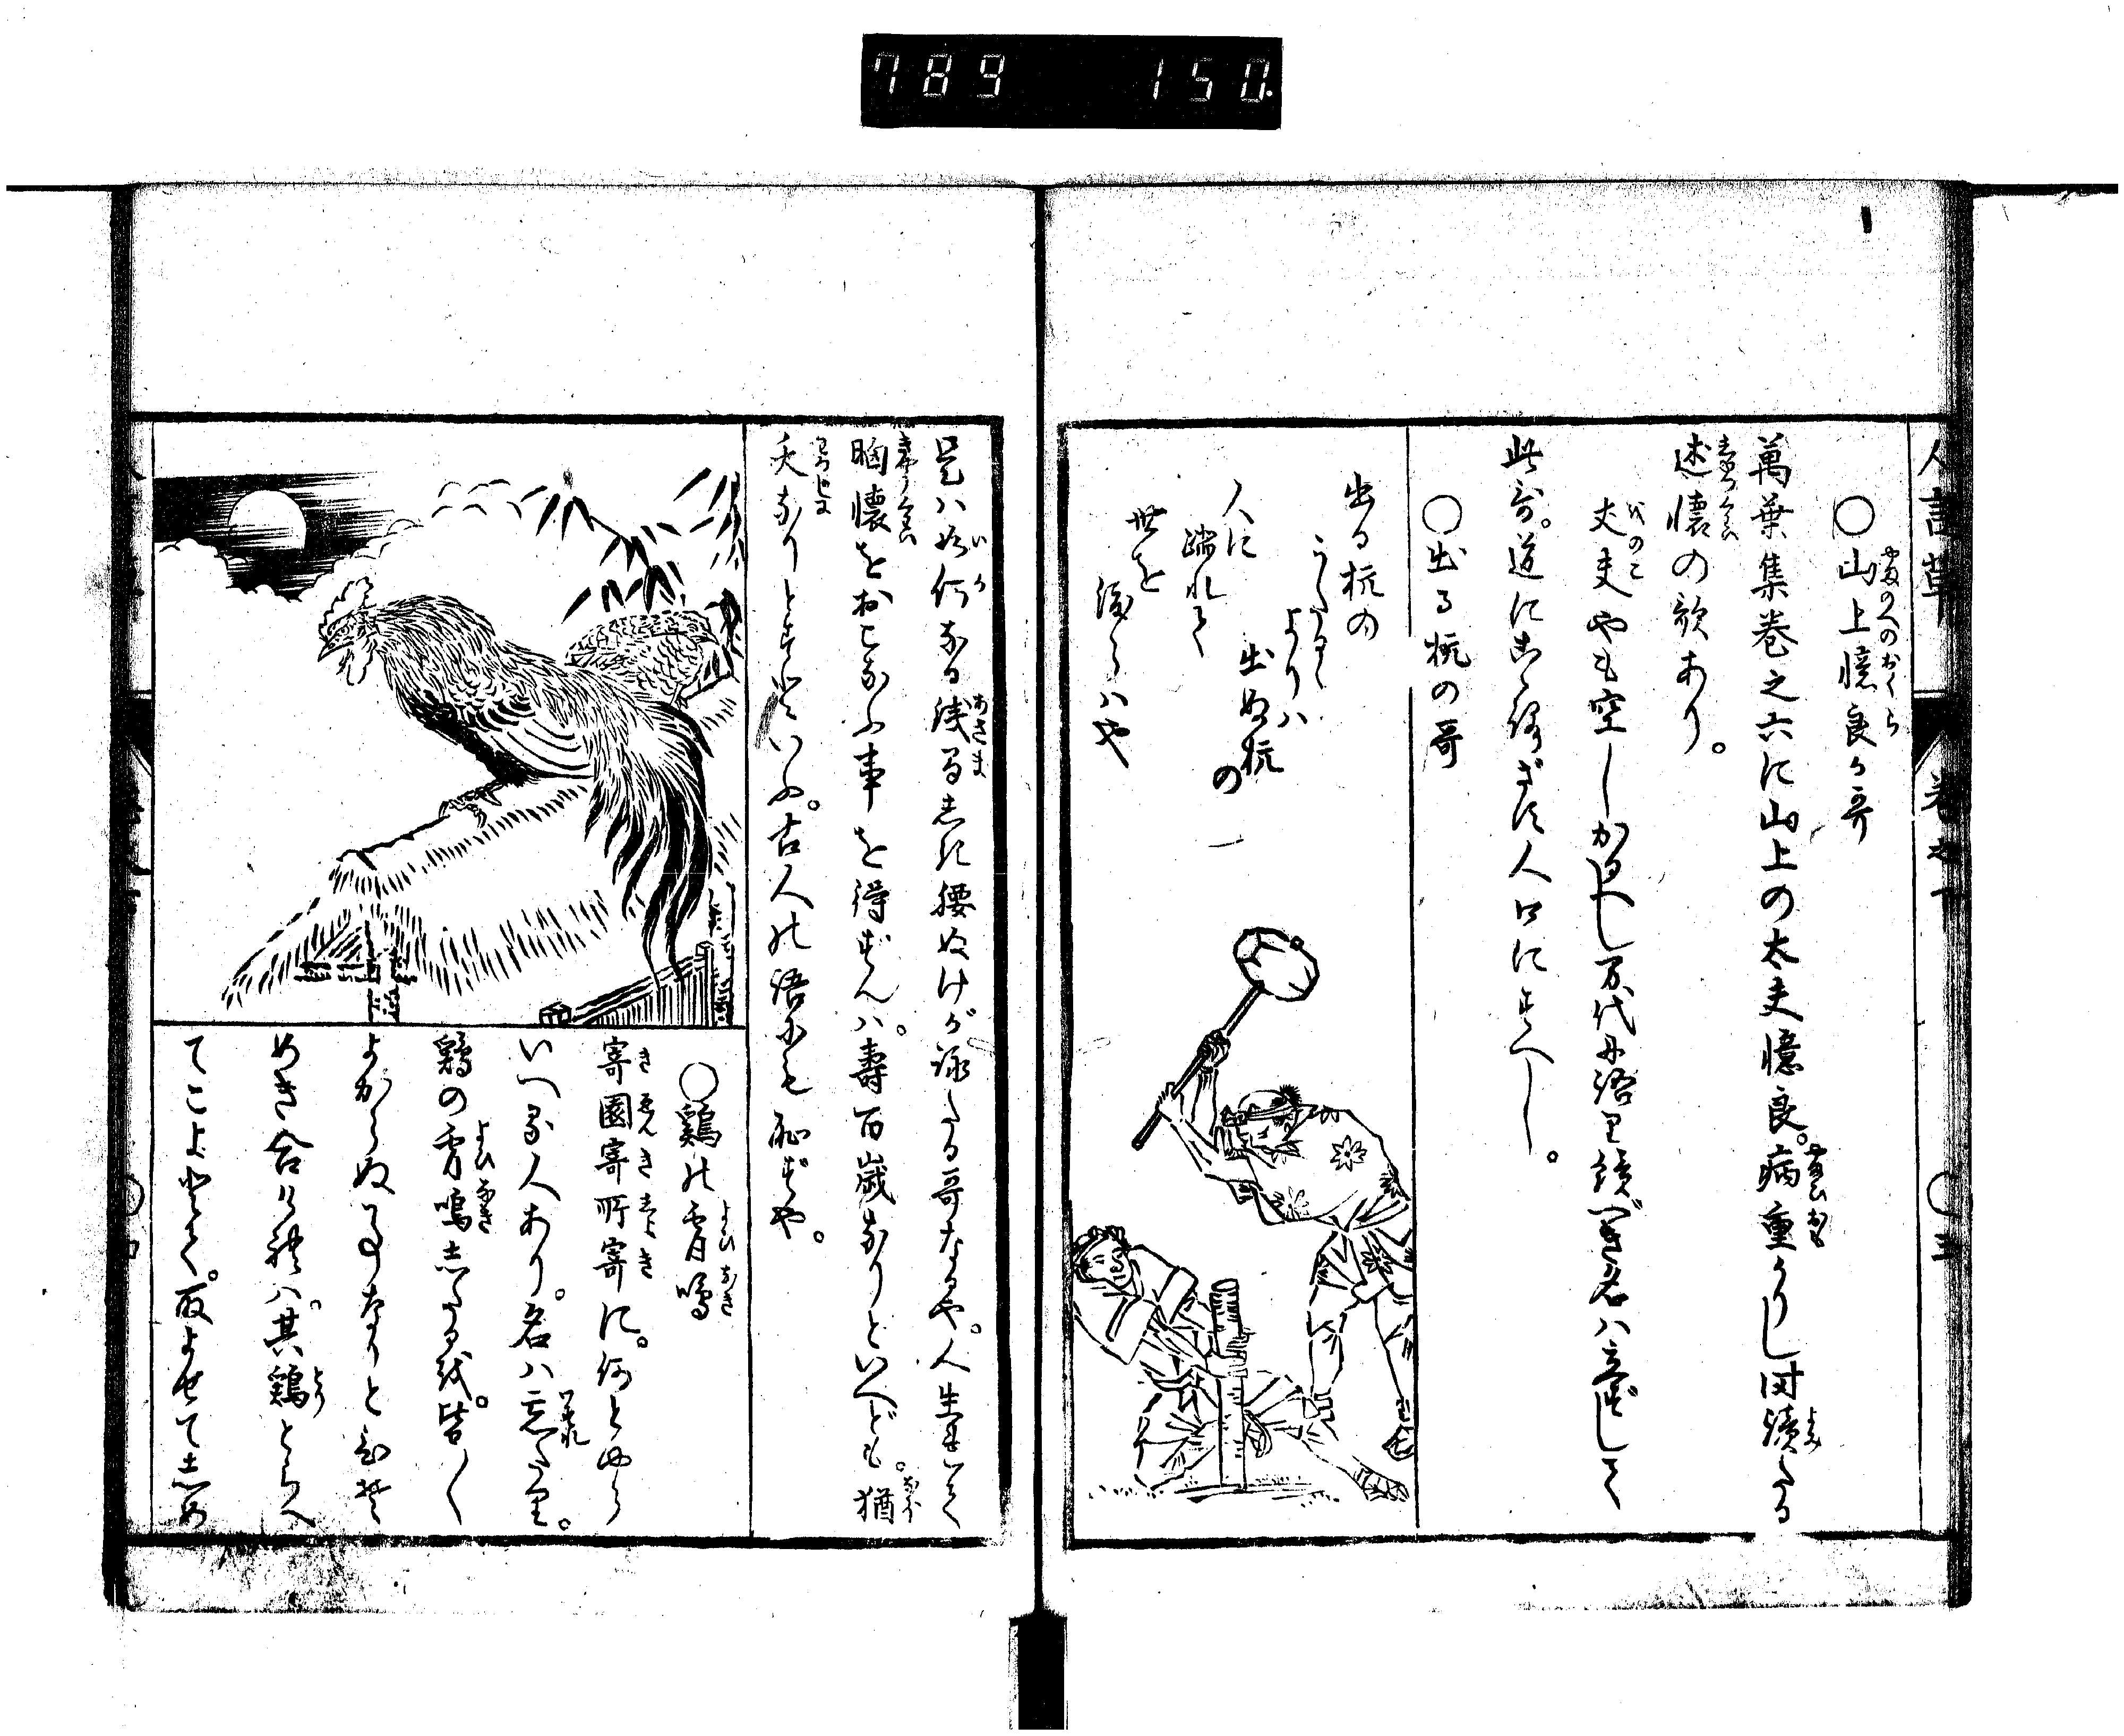 789 150.
○山上憶良か哥
萬葉集巻之六に山上の太夫憶良。病重かりし時讀たる
述懐の歌あり。
丈夫やも空しかるへし万代に語り続べき名ハ立ずして
此哥。道に志ある人口にすへし。
○出る杭の哥
出る杭の
うたるゝ
よりハ
出ぬ杭の
人に
踏れて
世を
渡らハや
是ハ如何なる浅ましき腰ぬけが詠たる哥なるや。人生れて
胸懐をおこなふ事を得ずんハ。壽百歳なりといへども。猶
夭なりとすといふ。古人の語にも恥ずや。
○鷄の宵鳴
寄園寄所寄に。何とやら
いへる人あり。名ハ忘たり。
鷄の宵鳴したるを。皆〳〵
よからぬ事なりと
めき合けれハ。其鷄とらへ
てこよとて。取よせてしめ